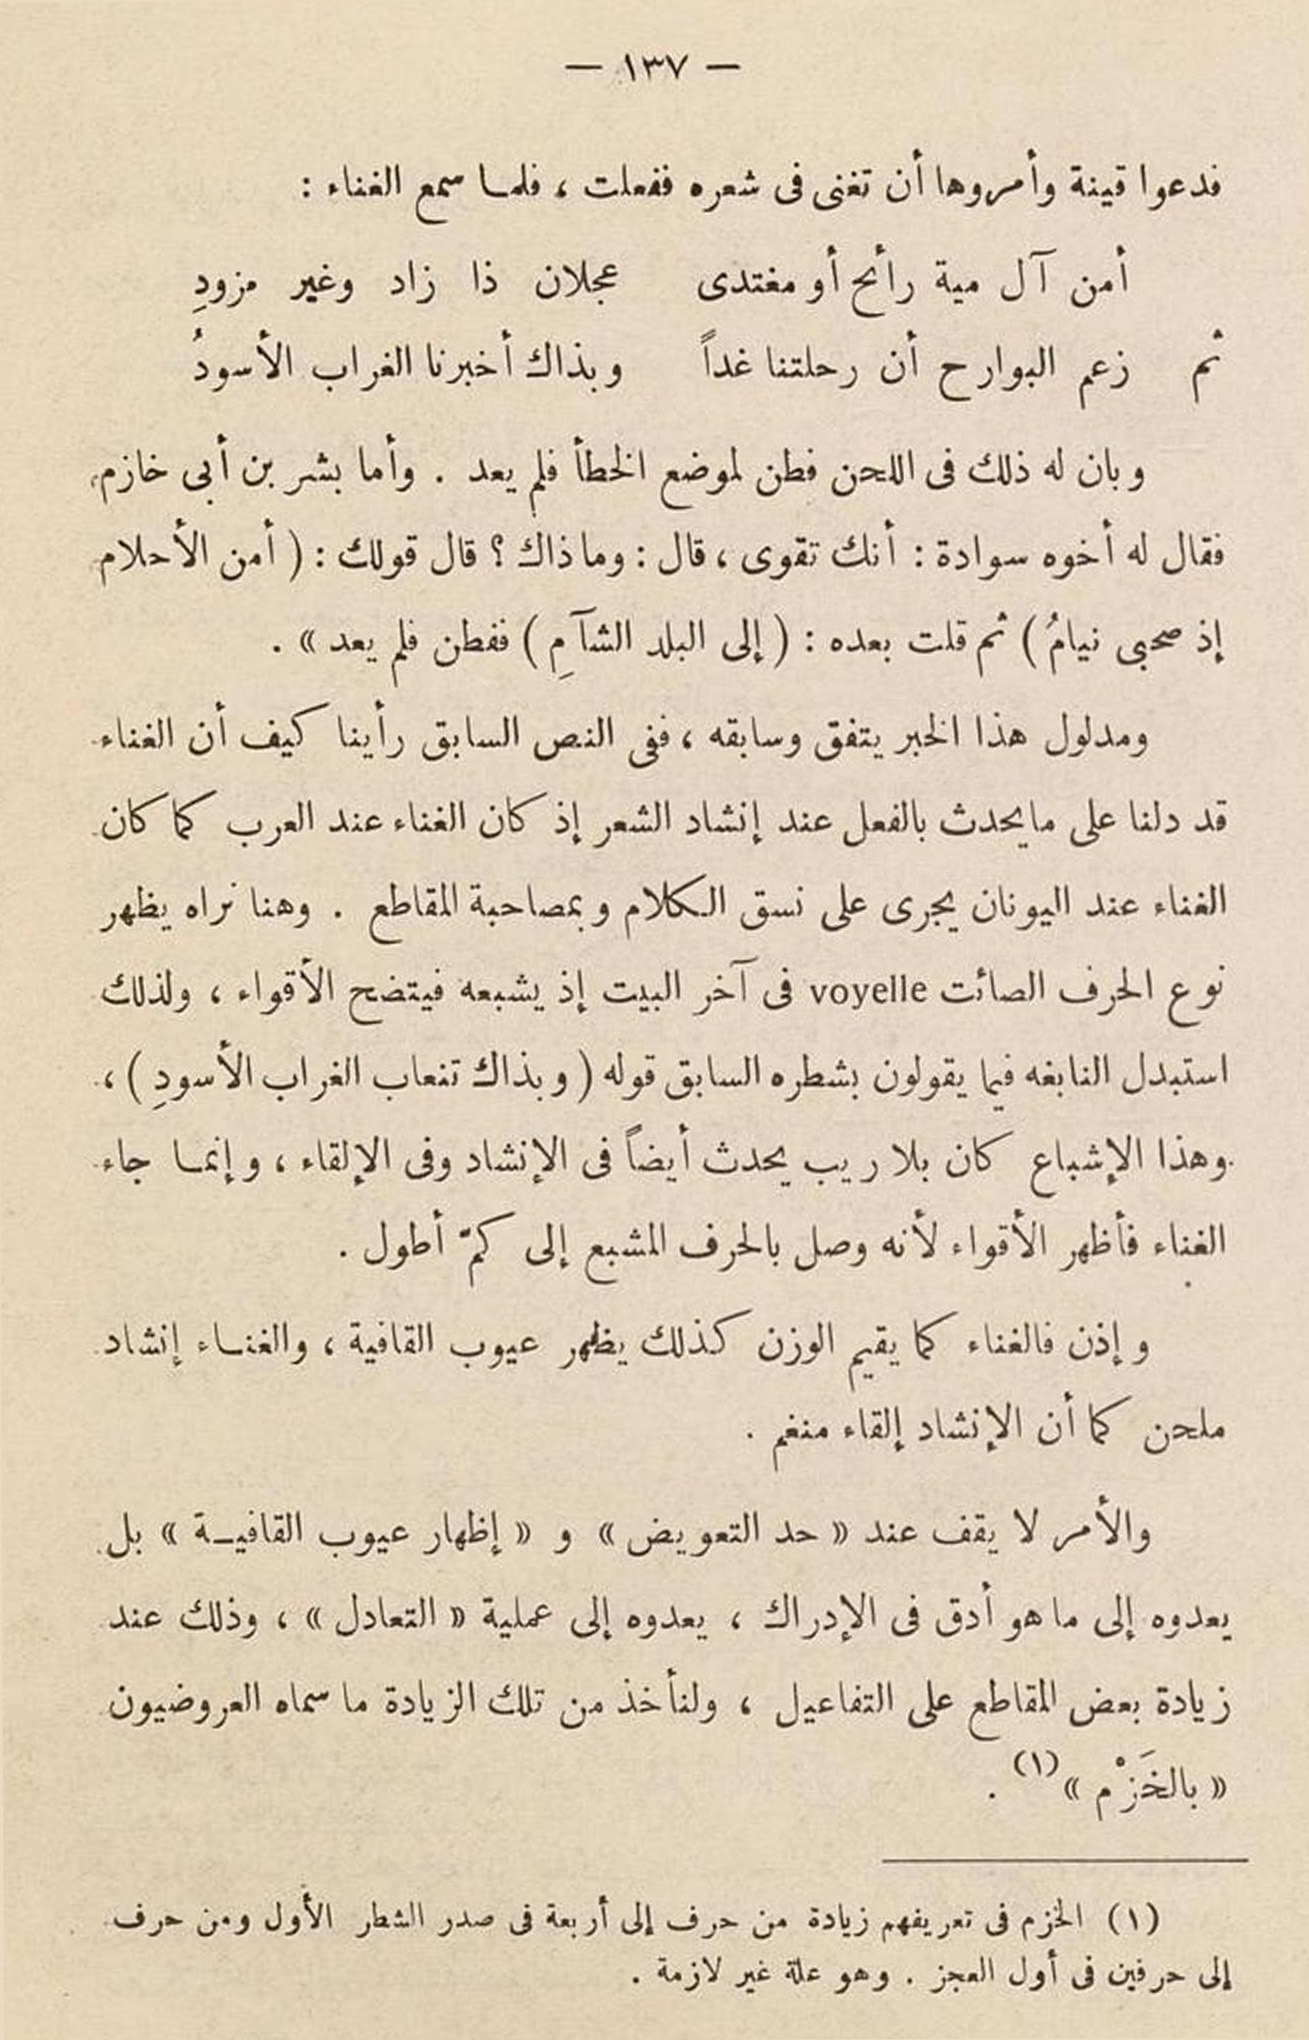 — ١٣٧ —
فدعوا قينة وأمروها أن تغنى فى شعره ففعلت ، فلمـا سمع الغناء :
أمن آل مية رأئح أو مغتدى عجلان ذا زاد وغير مزودِ
ثم زعم البوارح أن رحلتنا غداً وبذاك أخبرنا الغراب الأسودُ
وبان له ذلك فى اللحن فطن لموضع الخطأ فلم يعد . وأما بشر بن أبى خازم،
فقال له أخوه سوادة : أنك تقوى ، قال : وماذاك ؟ قال قولك : ( أمن الأحلام
إذ صحبى نيامُ ) ثم قلت بعده : ( إلى البلد الشآمِ ) ففطن فلم يعد » .
ومدلول هذا الخبر يتفق وسابقه ، ففى النص السابق رأينا كيف أن الغناء
قد دلنا على مايحدث بالفعل عند إنشاد الشعر إذ كان الغناء عند العرب كما كان
الغناء عند اليونان يجرى على نسق الكلام وبمصاحبة المقاطع . وهنا نراه يظهر
نوع الحرف الصائت voyelle فى آخر البيت إذ يشبعه فيتضح الأقواء ، ولذلك
استبدل النابغه فيما يقولون بشطره السابق قوله ( وبذاك تنعاب الغراب الأسودِ ) ،
وهذا الإشباع كان بلا ريب يحدث أيضاً فى الإنشاد وفى الإلقاء ، وإنمـا جاء
الغناء فأظهر الأقواء لأنه وصل بالحرف المشبع إلى كمّ أطول .
وإذن فالغناء كما يقيم الوزن كذلك يظهر عيوب القافية ، والغنـاء إنشاد
ملحن كما أن الإنشاد إلقاء منغم .
والأمر لا يقف عند « حد التعويض » و « إظهار عيوب القافيـة » بل
يعدوه إلى ما هو أدق فى الإدراك ، يعدوه إلى عملية « التعادل » ، وذلك عند
زيادة بعض المقاطع على التفاعيل ، ولنأخذ من تلك الزيادة ما سماه العروضيون
« بالخَزْم » (١) .
(١) الخزم فى تعريفهم زيادة من حرف إلى أربعة فى صدر الشطر الأول ومن حرف
إلى حرفين فى أول العجز . وهو علة غير لازمة .